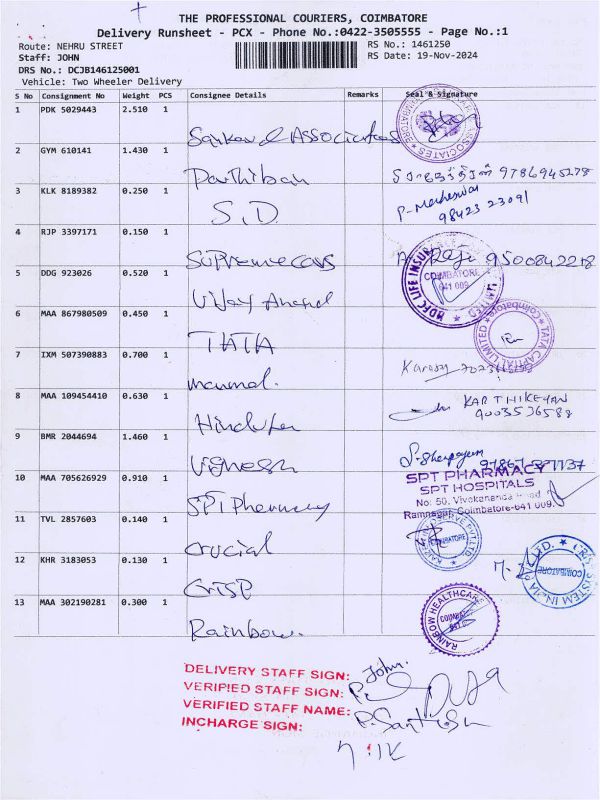 THE PROFESSIONAL COURIERS, COIMBATORE
Delivery Runsheet - PCX - Phone No.:0422-3505555 - Page No.:1
Route: NEHRU STREET
RS No.: 1461250
Staff: JOHN
RS Date: 19-Nov-2024
DRS No.: DCJB146125001
Vehicle: Two Wheeler Delivery
S No Consignment No Weight PCS Consignee Details Remarks Seal & Signature
1 PDK 5029443 2.510 1 Associates
2 GYM 610141 1.430 1 Parthiban 9786945278
3 KLK 8189382 0.250 1 S.D. P. Maheswar
98423 23091
4 RJP 3397171 0.150 1 Supreme cars Raji 9500842218
HDFC LIFE INSURANCE LIMITED
COIMBATORE
641 009
5 DDG 923026 0.520 1 Vijay Anand
6 MAA 867980509 0.450 1 TATA
TATA CAPITAL LIMITED
Coimbatore
7 IXM 507390883 0.700 1
8 MAA 109454410 0.630 1 KARTHIKEYAN
9003536588
9 BMR 2044694 1.460 1 Vignesh
10 MAA 705626929 0.910 1 SPT Pharmacy
SPT PHARMACY
SPT HOSPITALS
No: 50, Vivekananda Road
Ramnagar, Coimbatore-641 009.
11 TVL 2857603 0.140 1 Crucial
COIMBATORE
12 KHR 3183053 0.130 1 Crisp
COIMBATORE
13 MAA 302190281 0.300 1 Rainbow.
RAINBOW HEALTHCARE
DELIVERY STAFF SIGN: John.
VERIFIED STAFF SIGN:
VERIFIED STAFF NAME: P. Santhosh
INCHARGE SIGN: